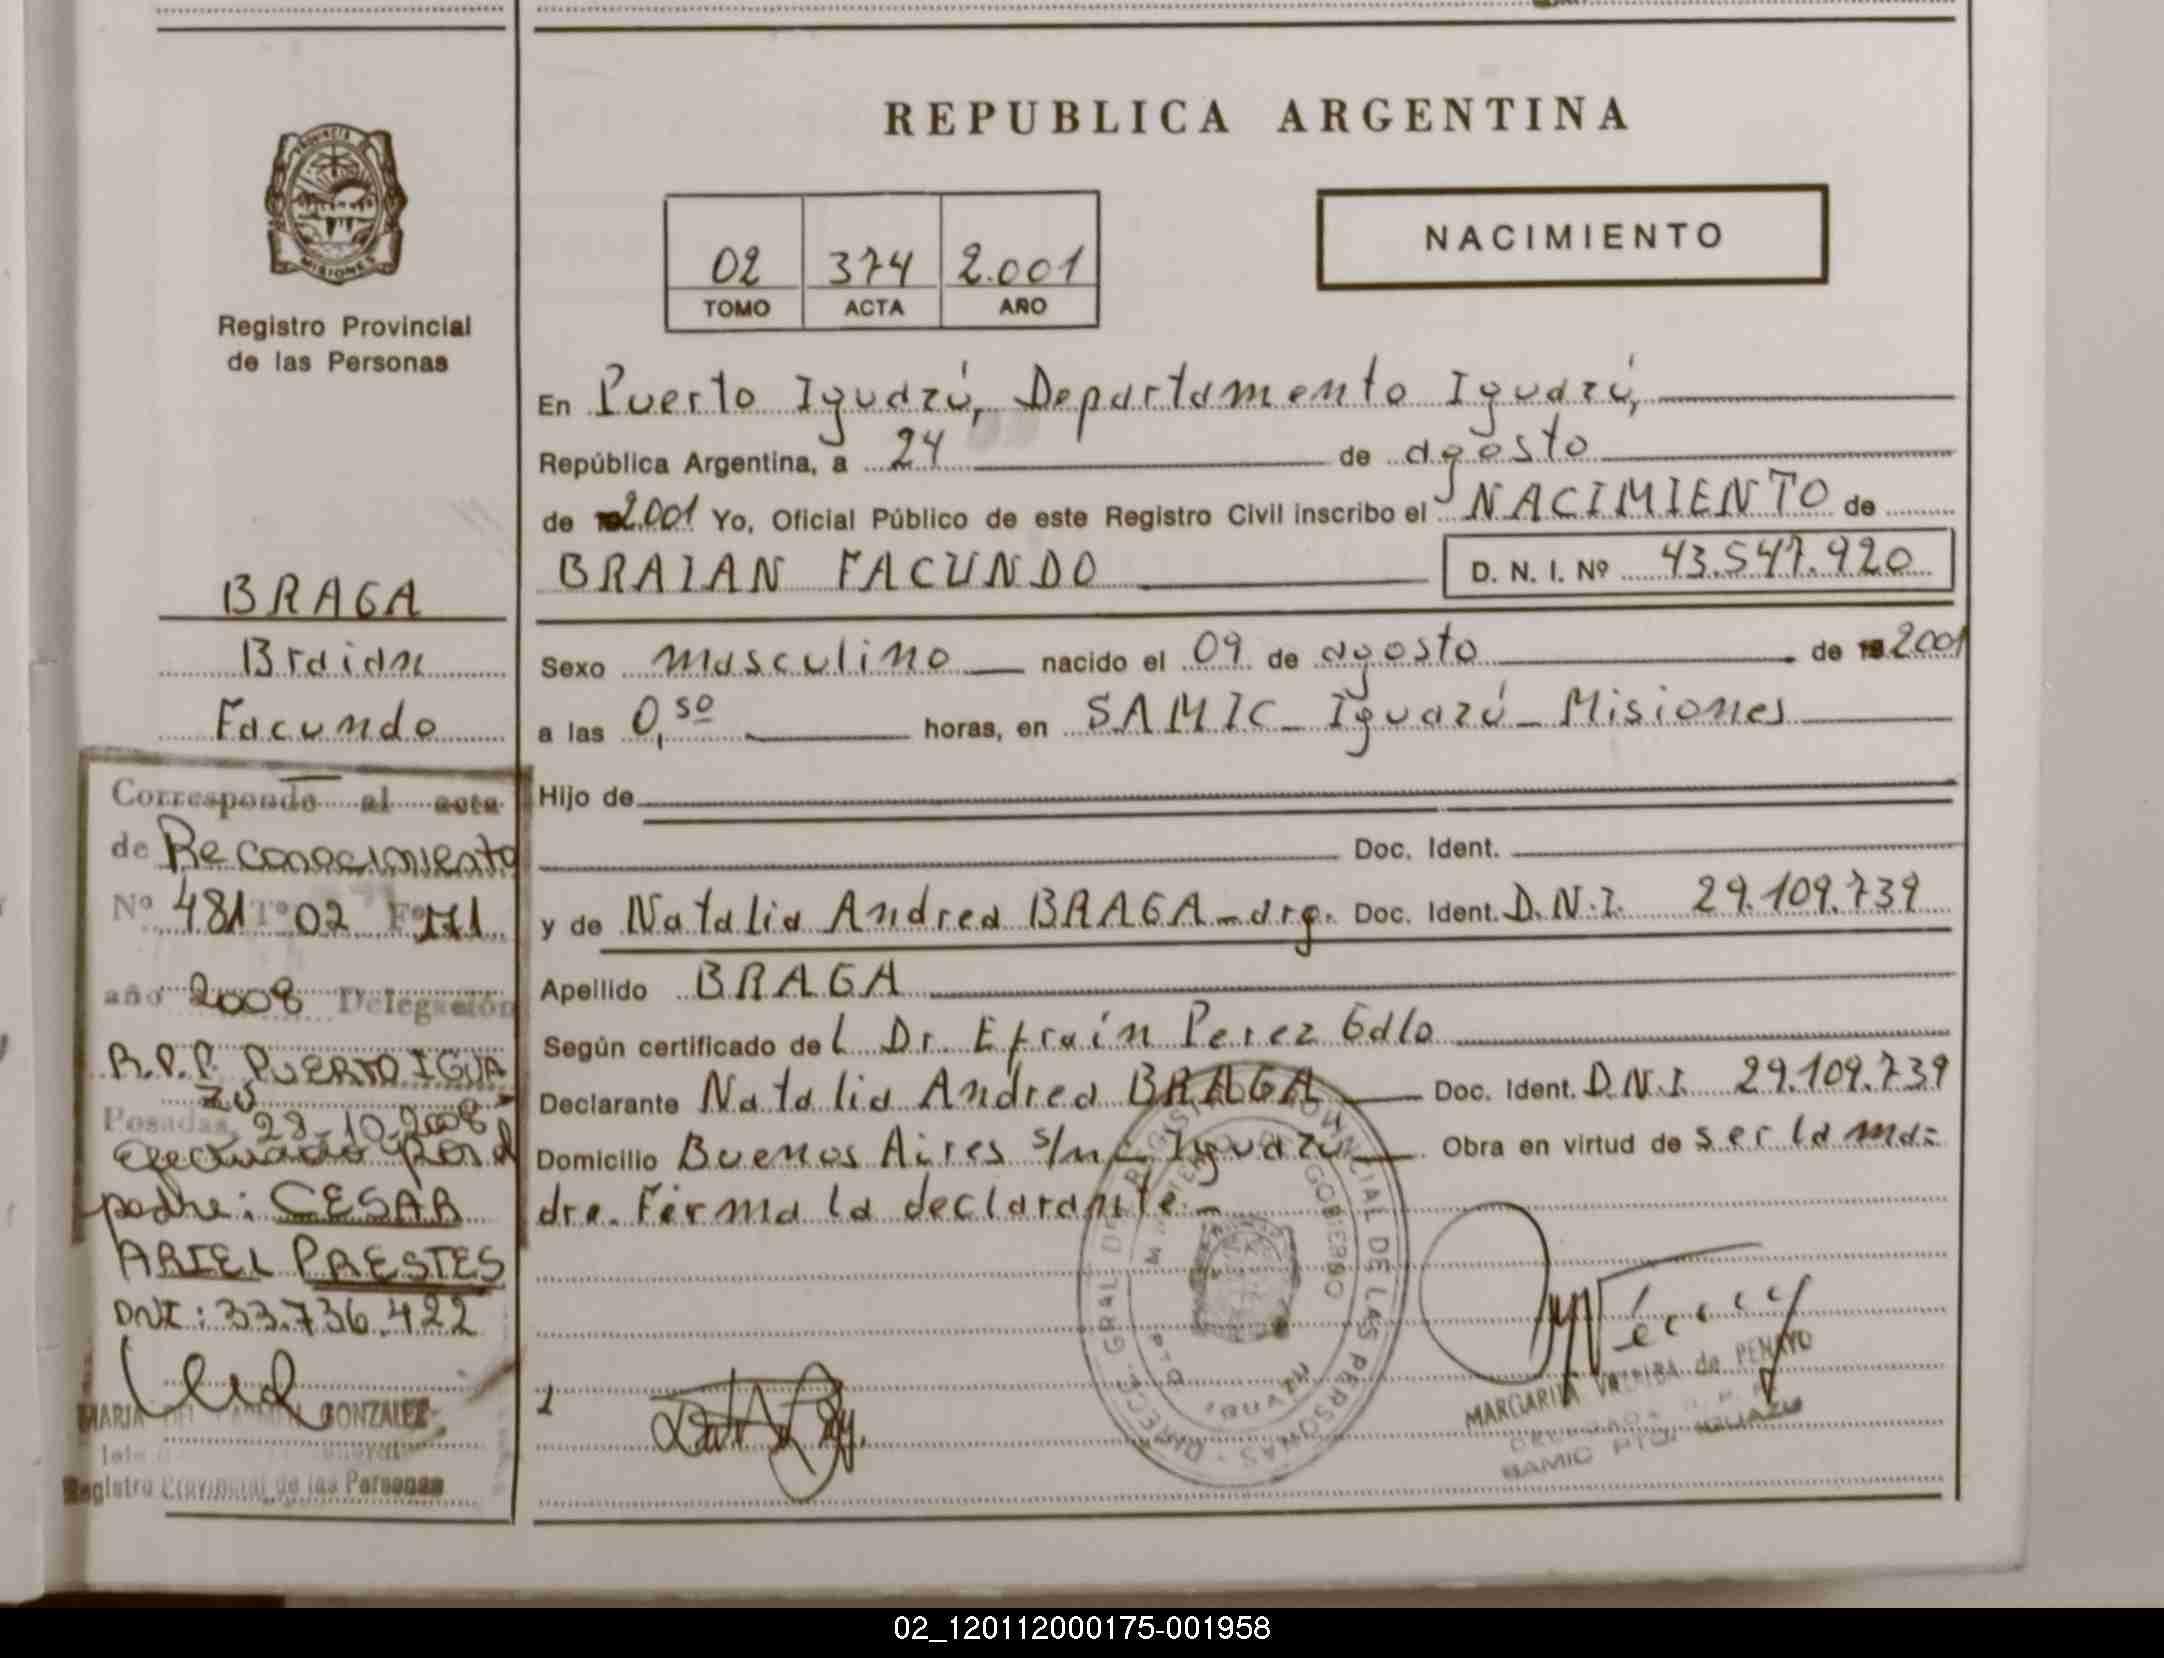 REPUBLICA ARGENTINA
PROVINCIA
MISIONES
Registro Provincial
de las Personas
02 374 2.001
TOMO ACTA AÑO
NACIMIENTO
En Puerto Iguazú, Departamento Iguazú,
República Argentina, a 24 de agosto
de 2.001 Yo, Oficial Público de este Registro Civil inscribo el NACIMIENTO de
BRAIAN FACUNDO D. N. I. Nº 43.547.920
Sexo masculino nacido el 09 de agosto de 2001
a las 0,50 horas, en SAMIC - Iguazú - Misiones
Hijo de
Doc. Ident.
y de Natalia Andrea BRAGA - arg. Doc. Ident. D.N.I. 29.109.739
Apellido BRAGA
Según certificado del Dr. Efraín Perez Galo
Declarante Natalia Andrea BRAGA Doc. Ident. D.N.I. 29.109.739
Domicilio Buenos Aires s/n Iguazú Obra en virtud de ser la ma=
dre. Firma la declarante.-
BRAGA
Braian
Facundo
Corresponde al acta
de Reconocimiento
Nº 481 Tº 02 Fº 171
año 2008 Delegación
R.P.P. PUERTO IGUA
ZU
Posadas, 28-10-2008
efectuado por el
padre: CESAR
ARIEL PRESTES
DNI: 33.736.422
MARIA DEL CARMEN GONZALEZ
Registro Provincial de las Personas
PROVINCIAL DE LAS PERSONAS
GOBIERNO
MARGARITA de PENAYO
SAMIC PTO. IGUAZU
02_120112000175-001958